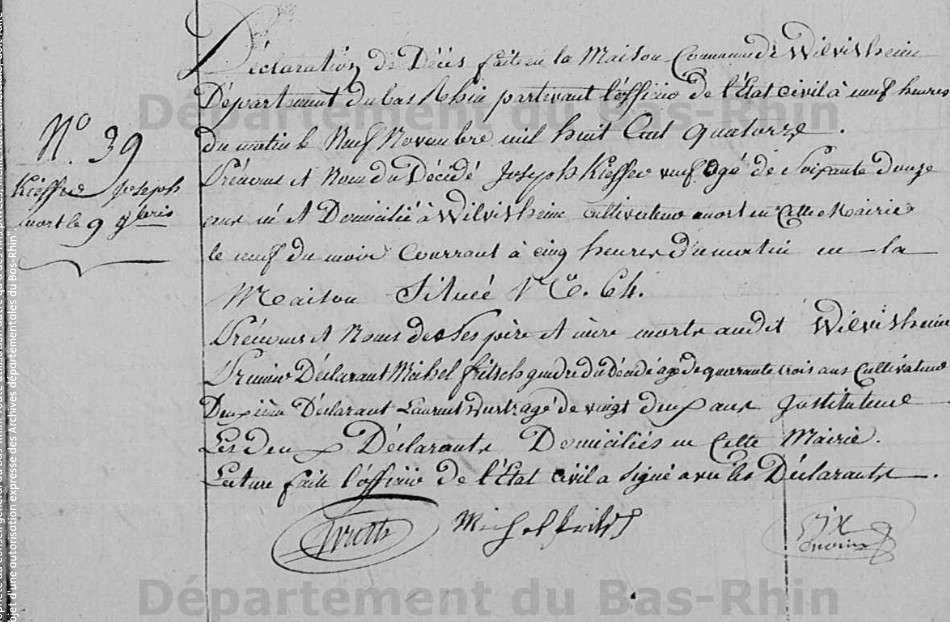 Déclaration de Décès faite en la Maison Commune de Wilvisheim
Département du bas Rhin pardevant l'officie de l'État civil à neuf heures
du matin le Neuf Novembre mil huit Cent quatorze.
N.º 39
Prénoms et Nom du Décidé Joseph Kieffer veuf agé de Soixante douze
Kieffer Joseph
ans né et Domicilié à Wilvisheim cultivateur mort en Cette Mairie
mort le 9 9bris
le neuf du mois Courrant à cinq heures du matin en la
Maison Situeé Nº. 64.
Prénoms et Noms de Ses père et mère morts audit Wilvisheim
Premier Déclarant Michel fritsch gendre du décidé agé de quarante trois ans Cultivateur
Deuxième Déclarant Laurent agé de vingt deux ans Instituteur
Les deux Déclarants Domiciliés en Cette Mairie.
Lecture faite l'officie de l'État Civil a signé avec les Déclarants.
Michel fritsch
Département du Bas-Rhin
Département du Bas-Rhin